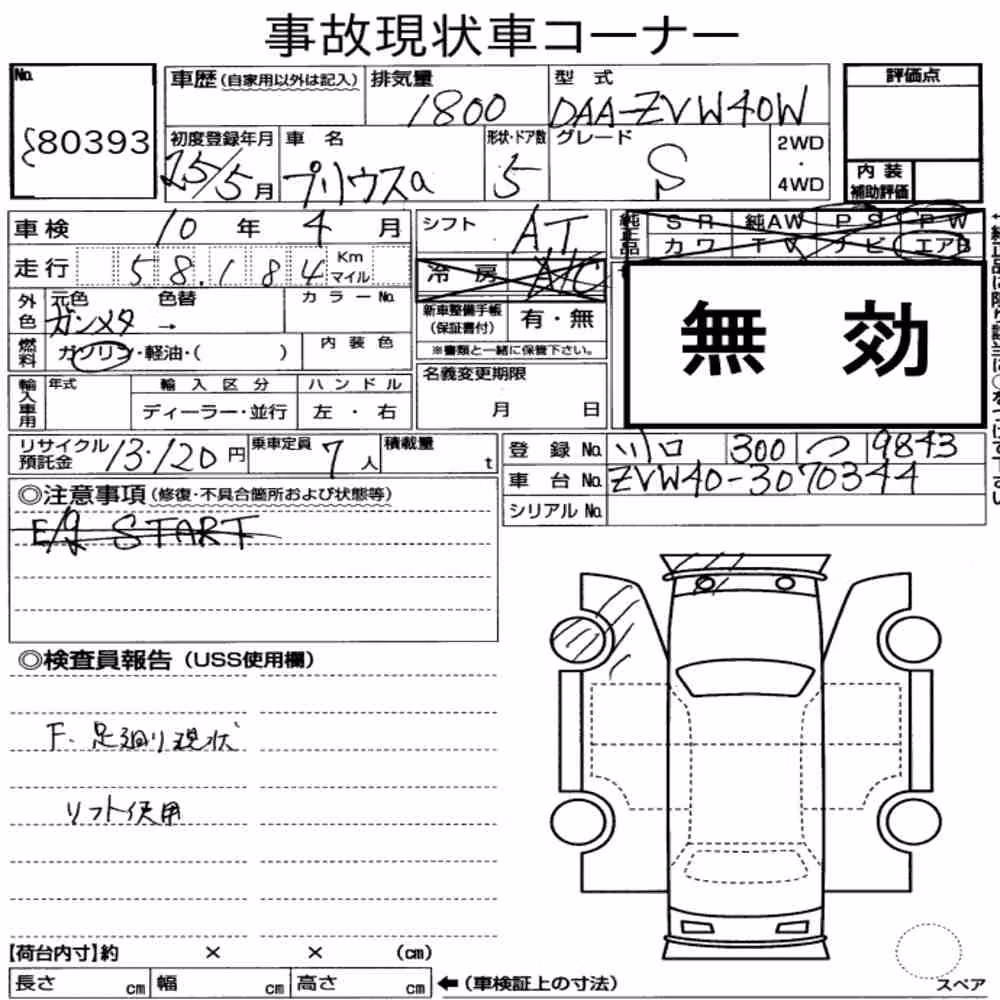 事故現状車コーナー
No. 80393
車歴 (自家用以外は記入) 排気量 1800 型式 DAA-ZVW40W
評価点
初度登録年月 25/5月 車名 プリウスα 形状・ドア数 5 グレード S 2WD・4WD
内装補助評価
車検 10年 4月 シフト AT
純正品 SR 純AW PS PW
カワ TV ナビ エアB
走行 58,184 Km マイル
冷房 A/C
無効
外色 元色 ガンメタ 色替 → カラーNo.
新車整備手帳 (保証書付) 有・無
※書類と一緒に保管下さい。
燃料 ガソリン・軽油・( ) 内装色
名義変更期限 月 日
輸入車用 年式 輸入区分 ハンドル
ディーラー・並行 左・右
リサイクル預託金 13,120円 乗車定員 7人 積載量 t
登録No. 川口 300 つ 9843
車台No. ZVW40-3070344
シリアルNo.
◎注意事項 (修復・不具合箇所および状態等)
E/g START
◎検査員報告 (USS使用欄)
F. 足廻り現状
リフト使用
【荷台内寸】約 × × (cm)
長さ cm 幅 cm 高さ cm ←(車検証上の寸法)
スペア